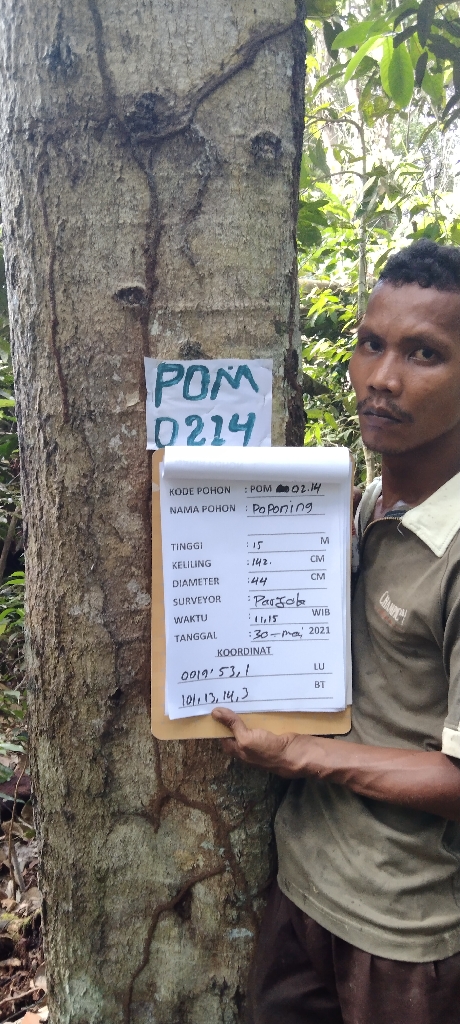 POM
0214
KODE POHON : POM 02.14
NAMA POHON : Poponing
TINGGI : 15 M
KELILING : 142. CM
DIAMETER : 44 CM
SURVEYOR :
WAKTU : 11,15 WIB
TANGGAL : 30-mei 2021
KOORDINAT
0019' 53,1 LU
101,13,14,3 BT